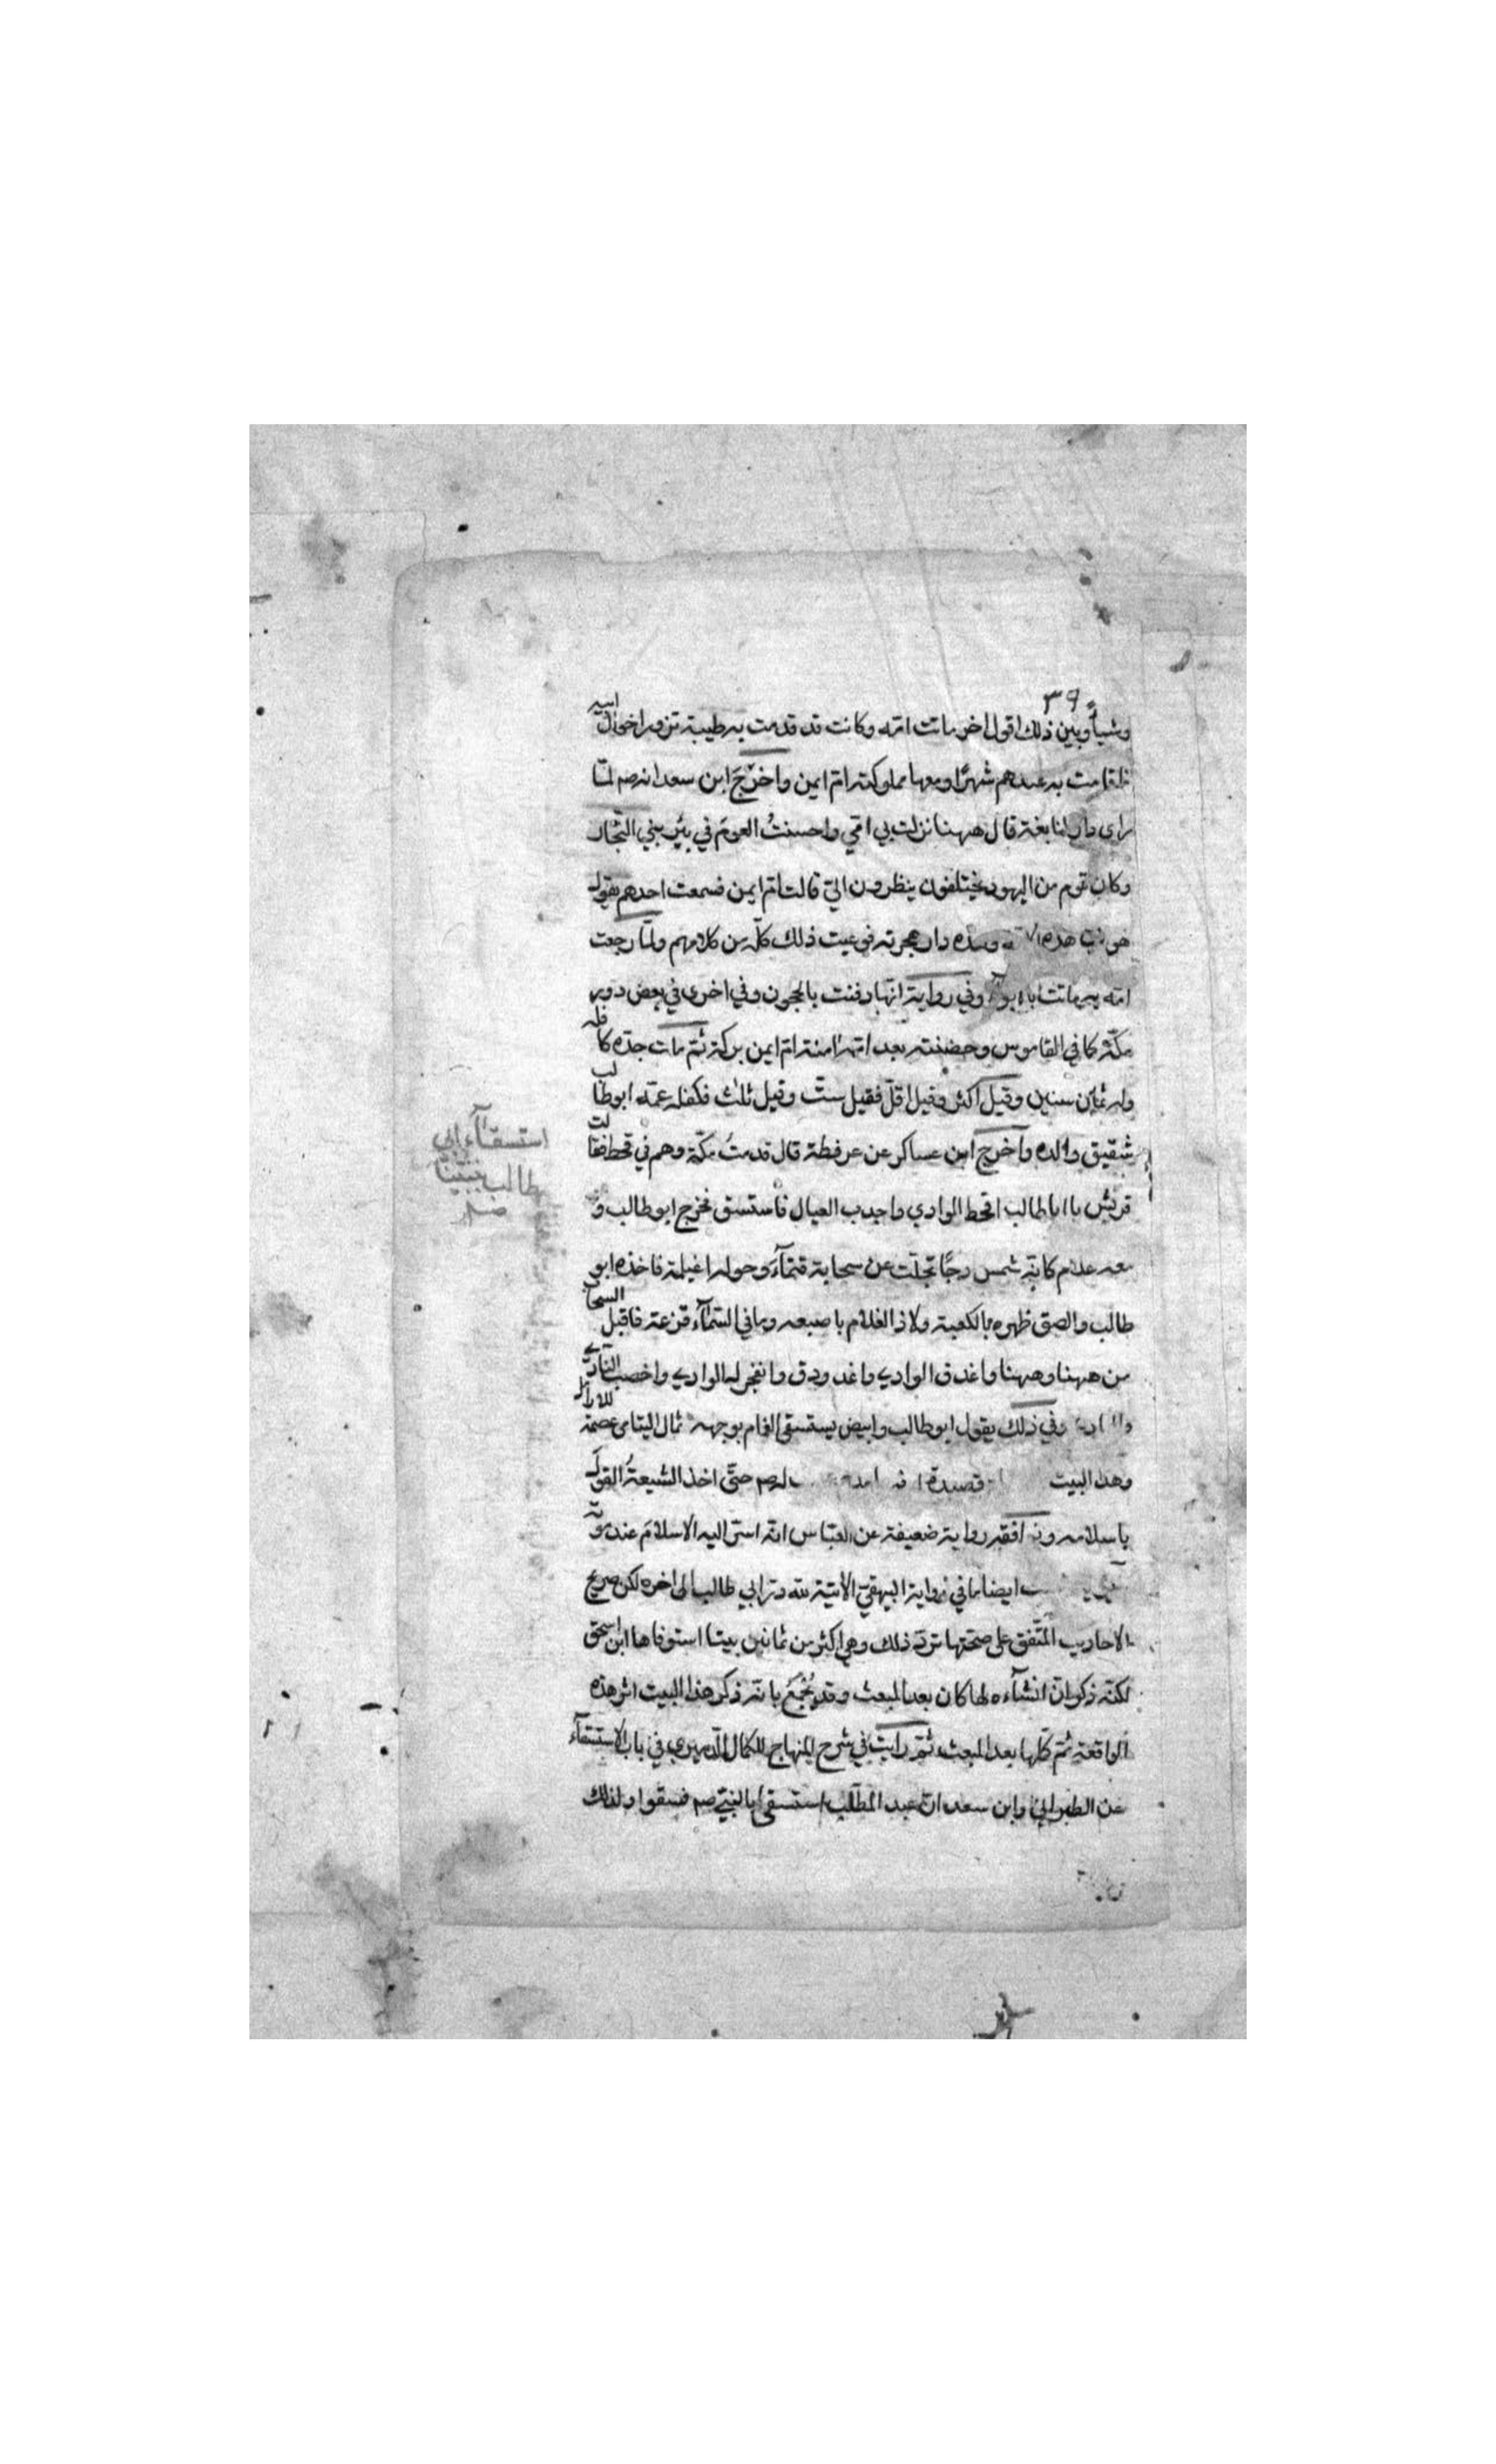 ٣٩
وشيأ وبين ذلك اقول اخر ماتت امّه وكانت قد قدمت به طيبة تزور اخوال ابيه
فاقامت به عندهم شهرًا ومعها مملوكته امّ ايمن واخرج ابن سعد انه صم لمّا
راى دار النابغة قال ههنا نزلت بي امّي واحسنتُ العومَ في بئر بني النّجار
وكان قوم من اليهود يختلفون ينظرون اليّ قالت امّ ايمن فسمعت احدهم يقول
هو نبيّ هذه وهذه دار هجرته فوعيت ذلك كلّه من كلامهم ولمّا رجعت
امّه به ماتت بالابواء وفي رواية انّها دفنت بالحجون وفي اخرى في بعض دور
مكّة كما في القاموس وحضنته بعد امّه امنة امّ ايمن بركة ثمّ مات جدّه كافله
وله ثمان سنين وقيل اكثر وقيل اقلّ فقيل ستّ وقيل ثلث فكفله عمّه ابو طالب
شقيق والده واخرج ابن عساكر عن عرفطة قال قدمتُ مكّة وهم في قحط فقالت
قريش يا ابا طالب اقحط الوادي واجدب العيال فاستسق فخرج ابو طالب و
معه غلام كانّه شمس دجًا تجلّت عن سحابة قتمآءَ وحوله اغيلمة فاخذه ابو
طالب والصق ظهره بالكعبة ولاذ الغلام باصبعه وما في السّمآء قزعة فاقبل السحاب
من ههنا وههنا واغدق الوادي واغدودق وانفجر له الوادي واخصب النّادي
وفي ذلك يقول ابو طالب وابيض يستسقى الغمام بوجهه ثمال اليتامى عصمة للارامل
وهذا البيت قصيدة صم حتّى اخذ الشيعةُ القول
باسلامه رواية ضعيفة عن العبّاس انّه اسرّ اليه الاسلامَ عند موته
ايضا ما في رواية البيهقيّ الآتية لله درّ ابي طالب الى اخره لكن صريح
الاحاديث المتّفق على صحّتها تردّ ذلك وهي اكثر من ثمانين بيتا استوفاها ابن اسحق
لكنّه ذكر انّ انشآءه لها كان بعد المبعث وقد يُجْمَعُ بانّه ذكر هذا البيت اثر هذه
الواقعة ثمّ كمّلها بعد المبعث ثمّ رايت في شرح المنهاج للكمال الدّميري في باب الاستسقآء
عن الطبراني وابن سعد انّ عبد المطّلب استسقى بالنبيّ صم فسقوا ولذلك
استسقآء ابي
طالب بنبيّنا
صلم